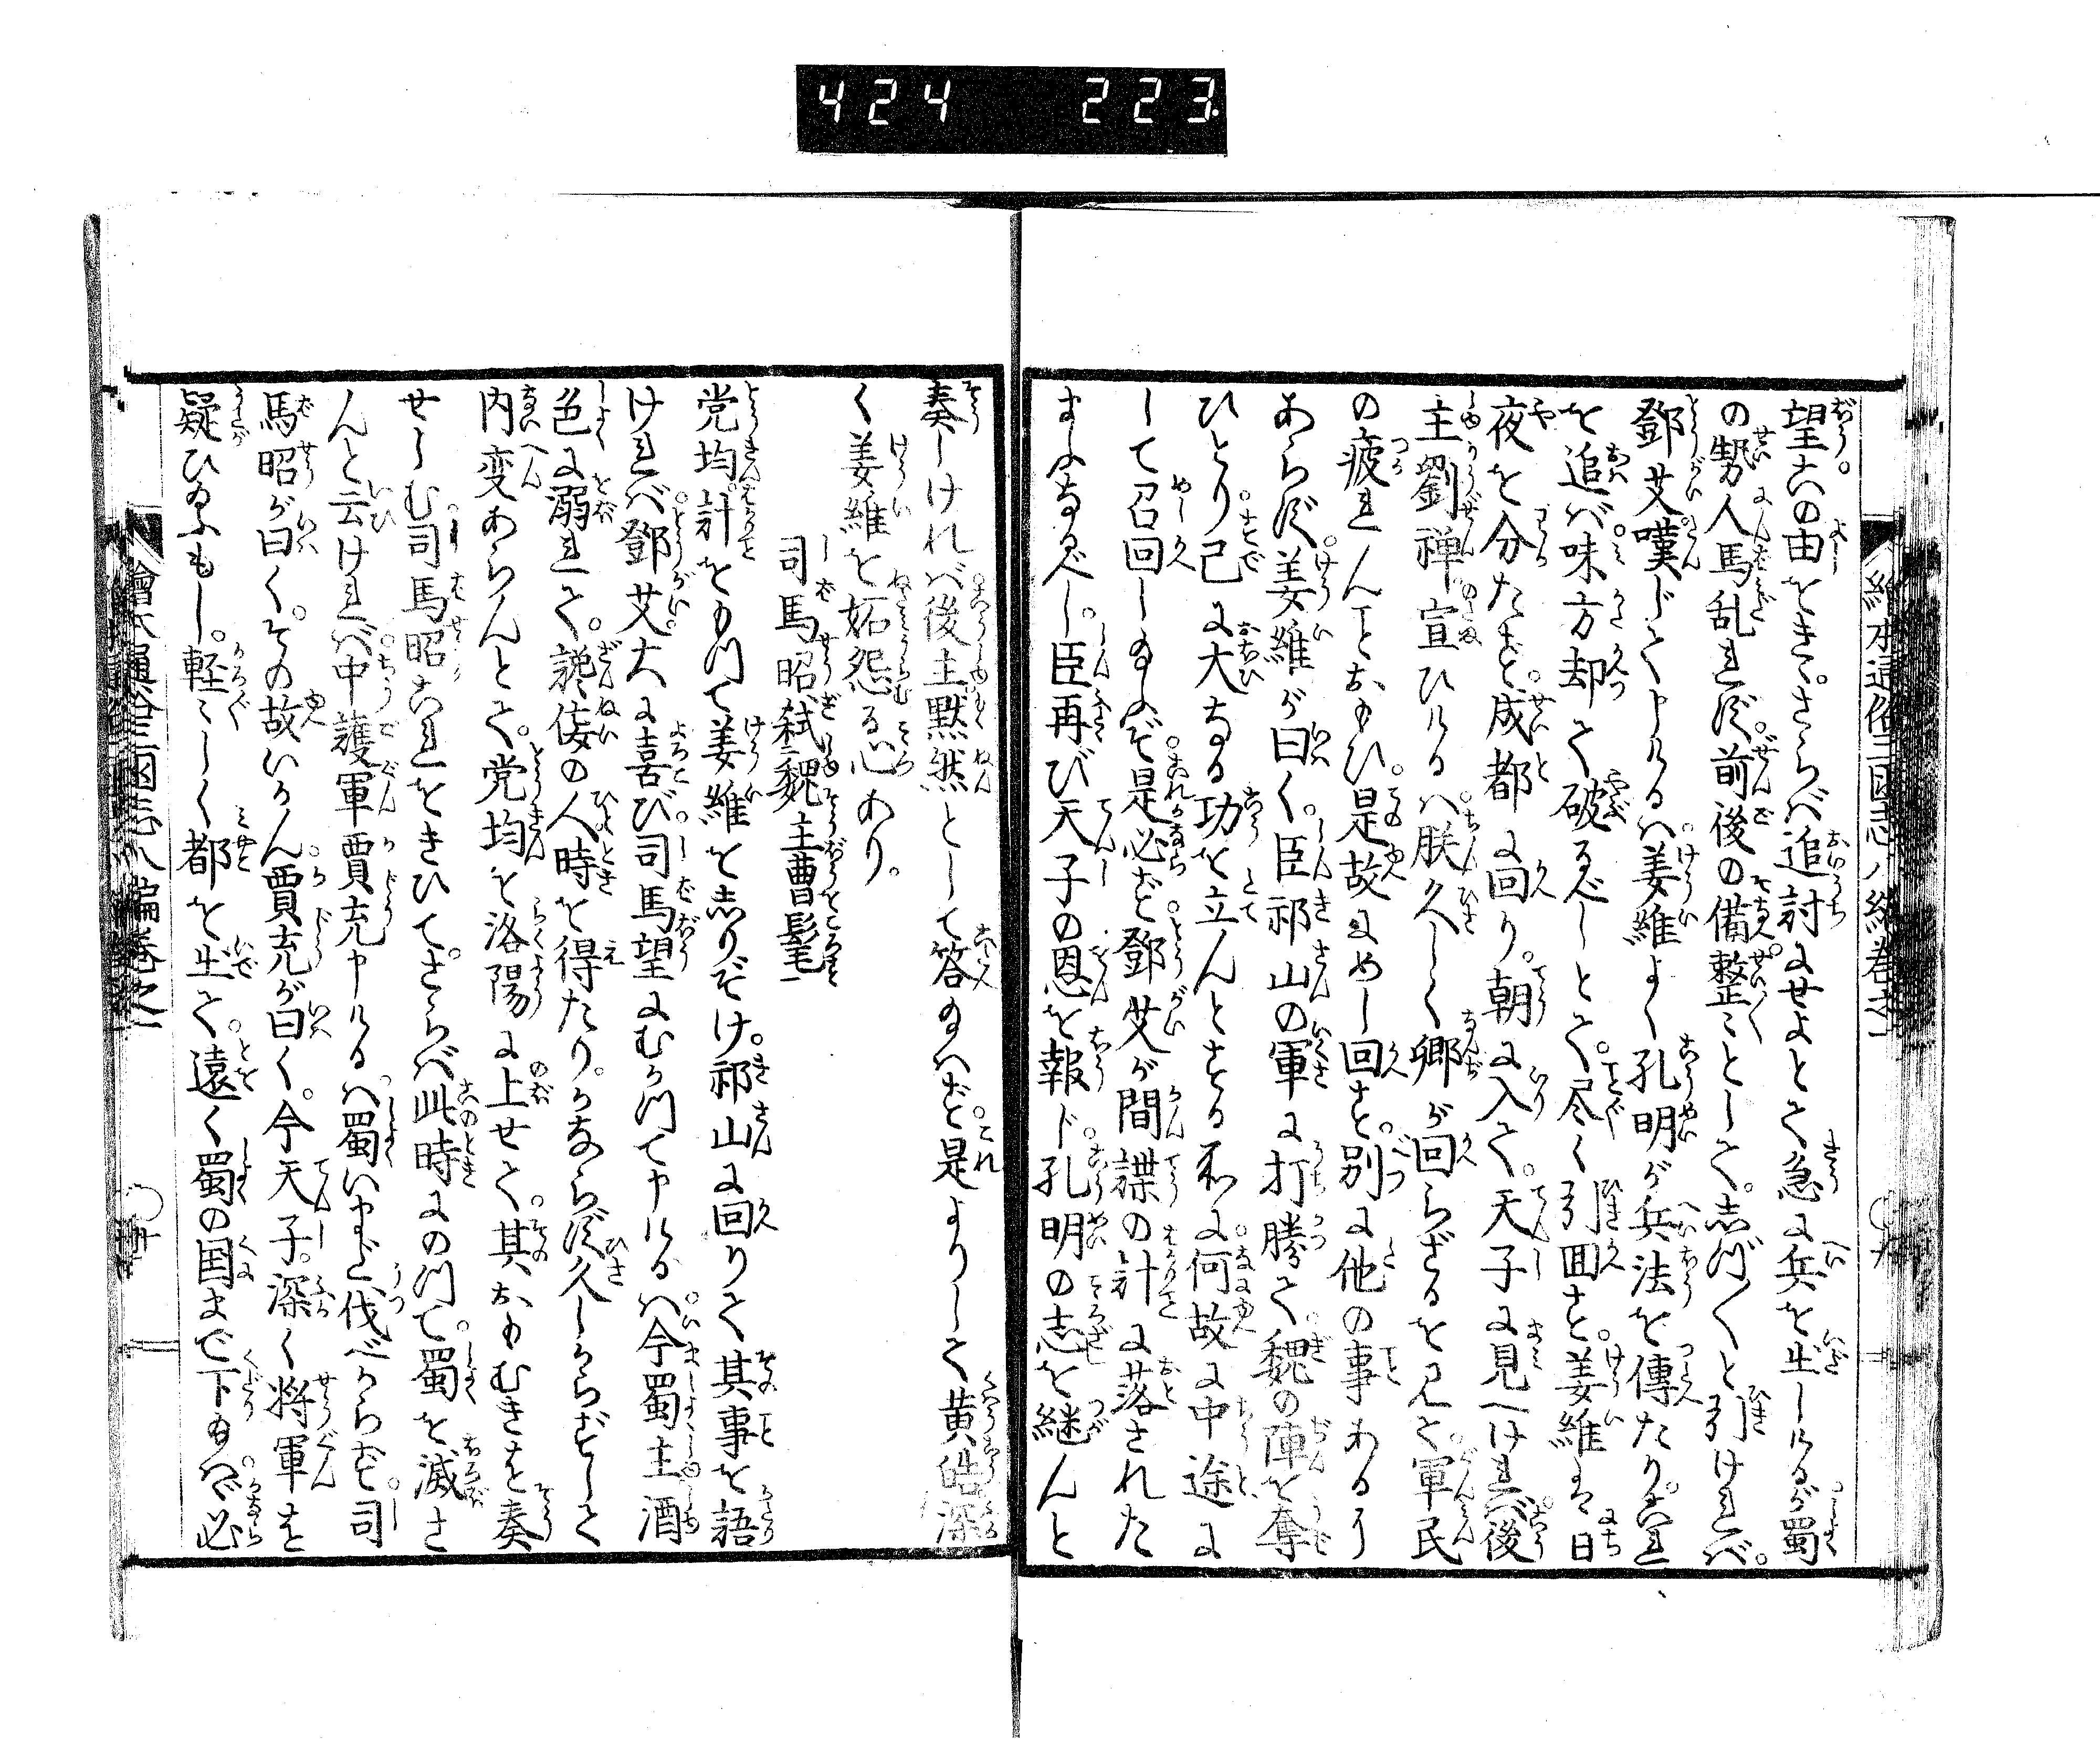 424 223
繪本通俗三国志八編巻之一
望これの由をきゝ。さらば追討にせよとて急に兵を出しけるが蜀
の勢人馬乱れず。前後の備整〻として。志づ〳〵と引ければ。
鄧艾嘆じて申けるは姜維よく孔明が兵法を傳たり。これ
を追ば味方却て破るべしとて。尽く引囬す。姜維は日
夜を分たず。成都に回り。朝に入て。天子に見へければ。後
主劉禅宣ひけるは朕久しく卿が回らざるを見て。軍民
の疲れんことおもひ。是故にめし回す。別に他の事あるに
あらず。姜維が曰く。臣祁山の軍に打勝て。魏の陣を奪
ひとり。已に大なる功を立んとする処に。何故に中途に
して召回し給ぞ。是必ず鄧艾が間諜の計に落された
まふなるべし。臣再び天子の恩を報じ。孔明の志を継んと
奏しければ。後主黙然として答給はず。是よりして黄皓深
く姜維を妬怨る心あり。
司馬昭弑魏主曹髦
党均計をもつて姜維を志りぞけ。祁山に回りて其事を語
ければ鄧艾。大に喜び。司馬望にむかつて申けるは。今蜀主酒
色に溺れて。讒侫の人時を得たり。かならず久しからずして
内変あらんとて。党均を洛陽に上せて。其おもむきを奏
せしむ。司馬昭これをきひて。さらば此時にのつて。蜀を滅さ
んと云ければ。中護軍賈充申けるは。蜀いまだ伐べからず。司
馬昭が曰く。その故いかん。賈充が曰く。今天子。深く将軍を
疑ひ給ふもし。軽〻しく都を出て。遠く蜀の国まで下給はゞ。必
繪本通俗三国志八編巻之一